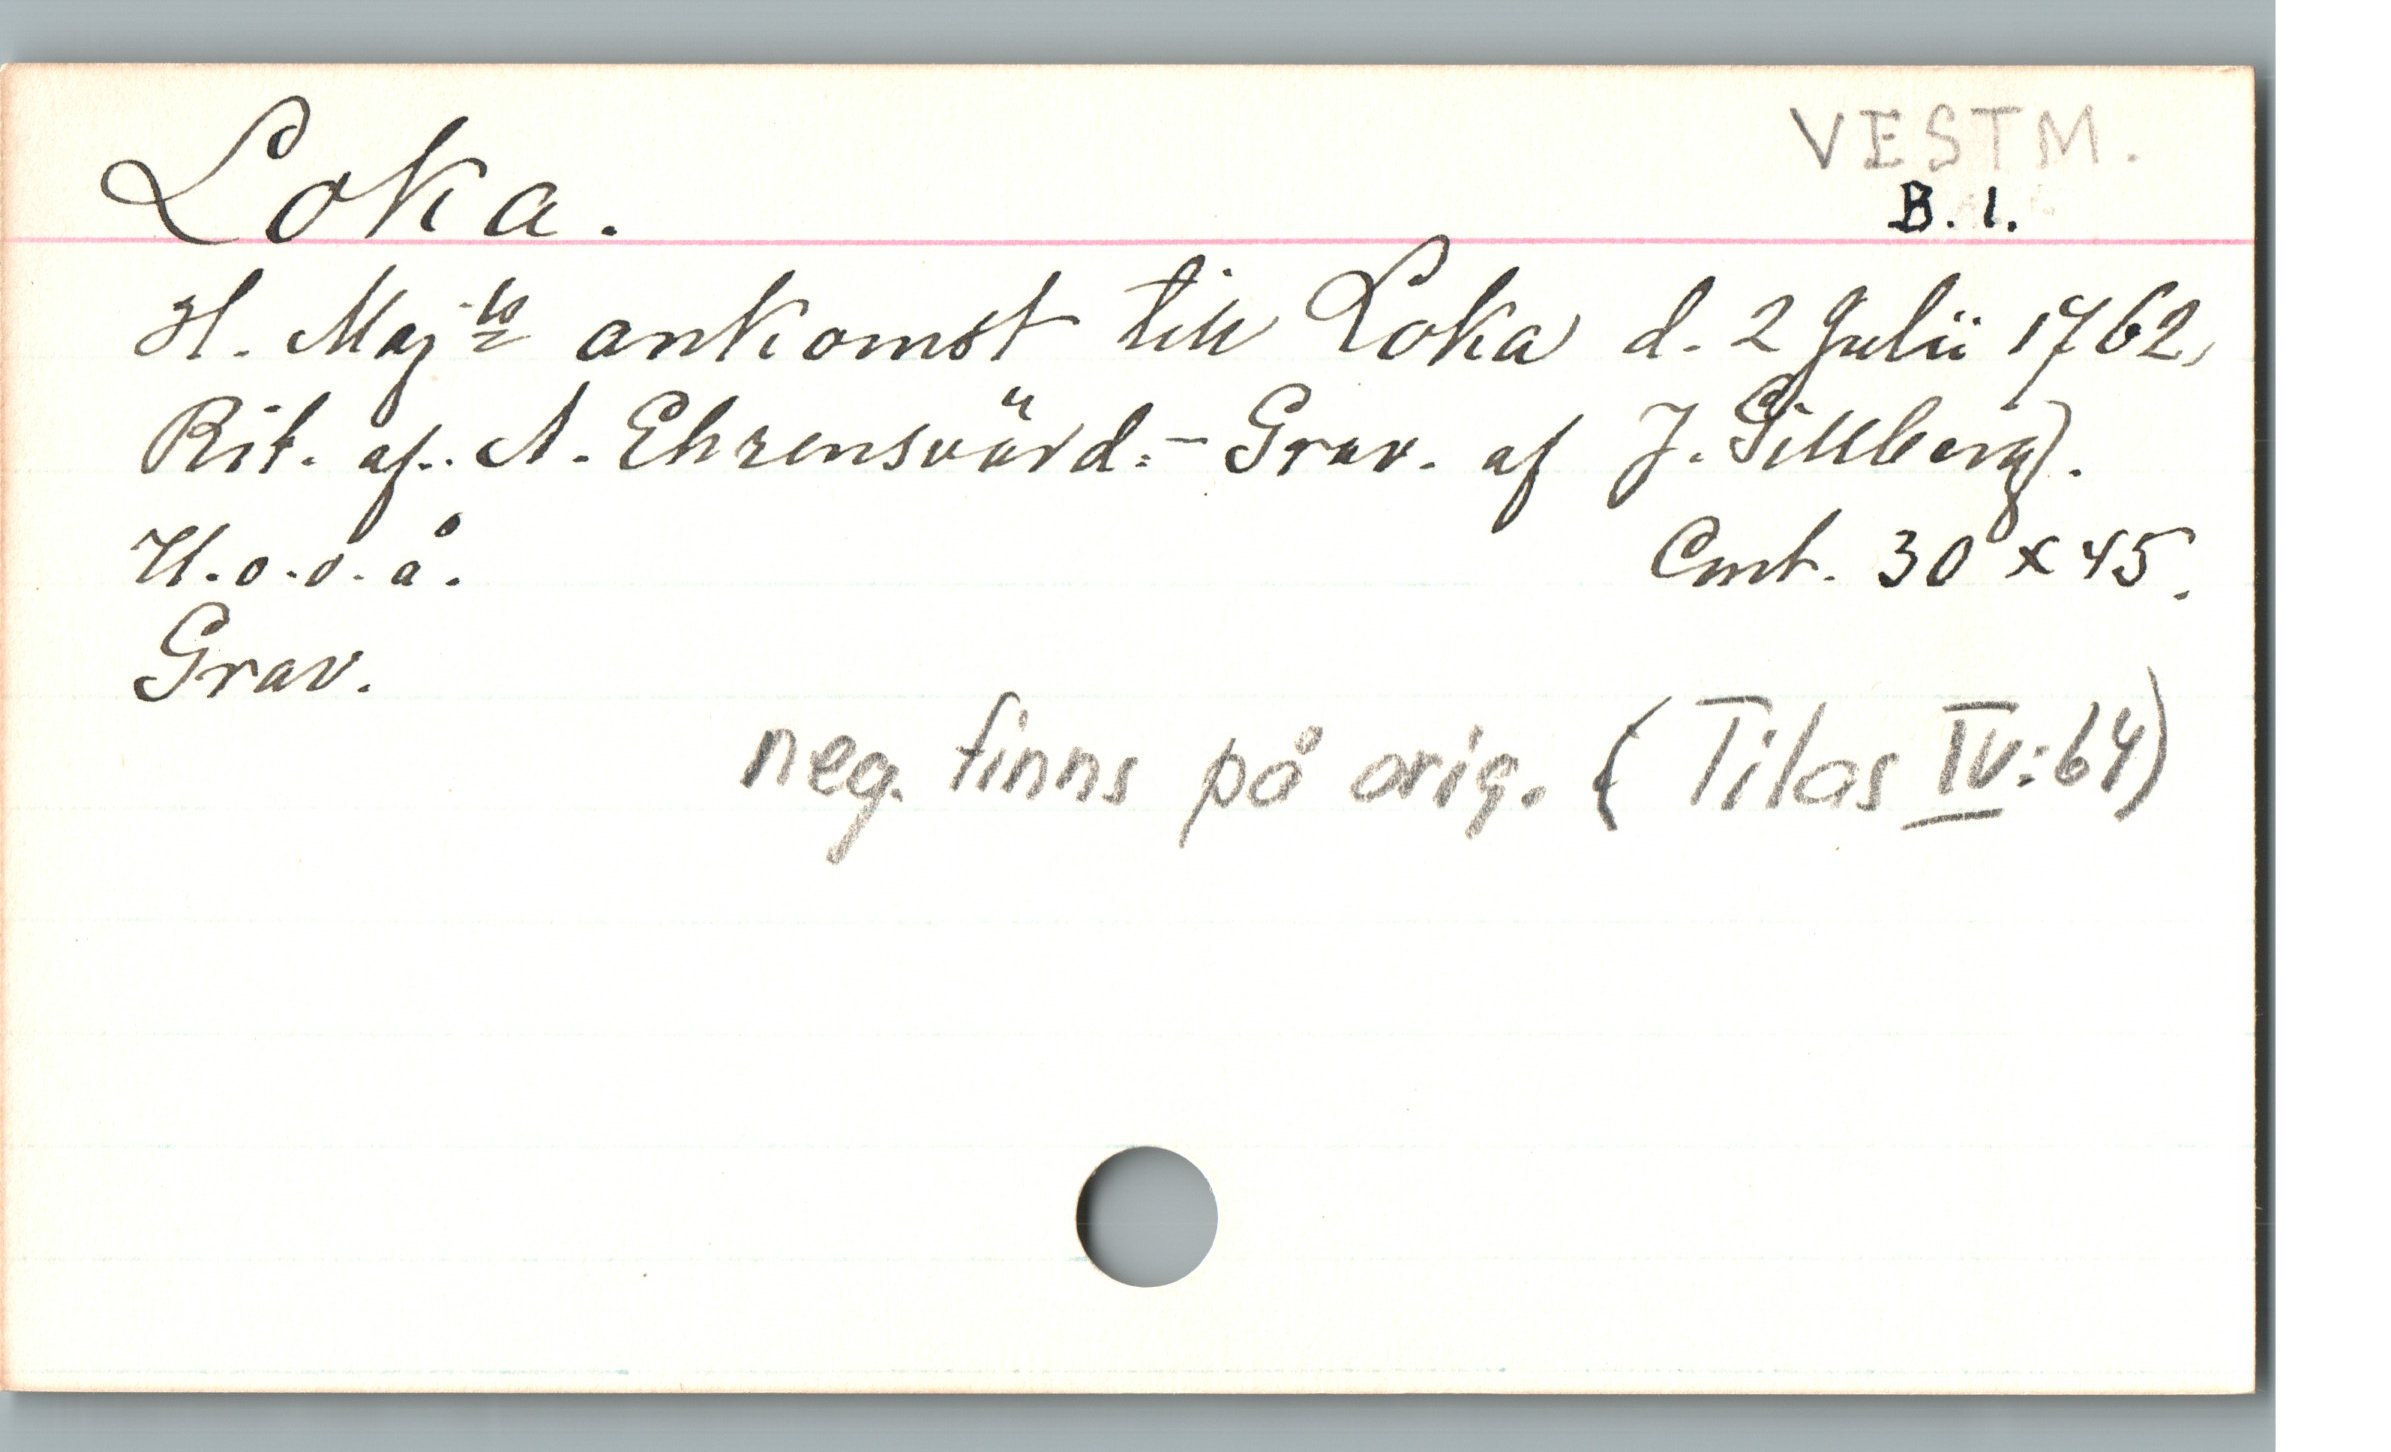 Loka.
VESTM.
B. 1.
H. Maj:ts ankomst till Loka d. 2 Julii 1762,
Rit. af. A. Ehrensvärd. - Grav. af J. Gillberg).
U.o.o.å.
Cmt. 30 x 45.
Grav.
neg. finns på orig. (Tilas IV:64)